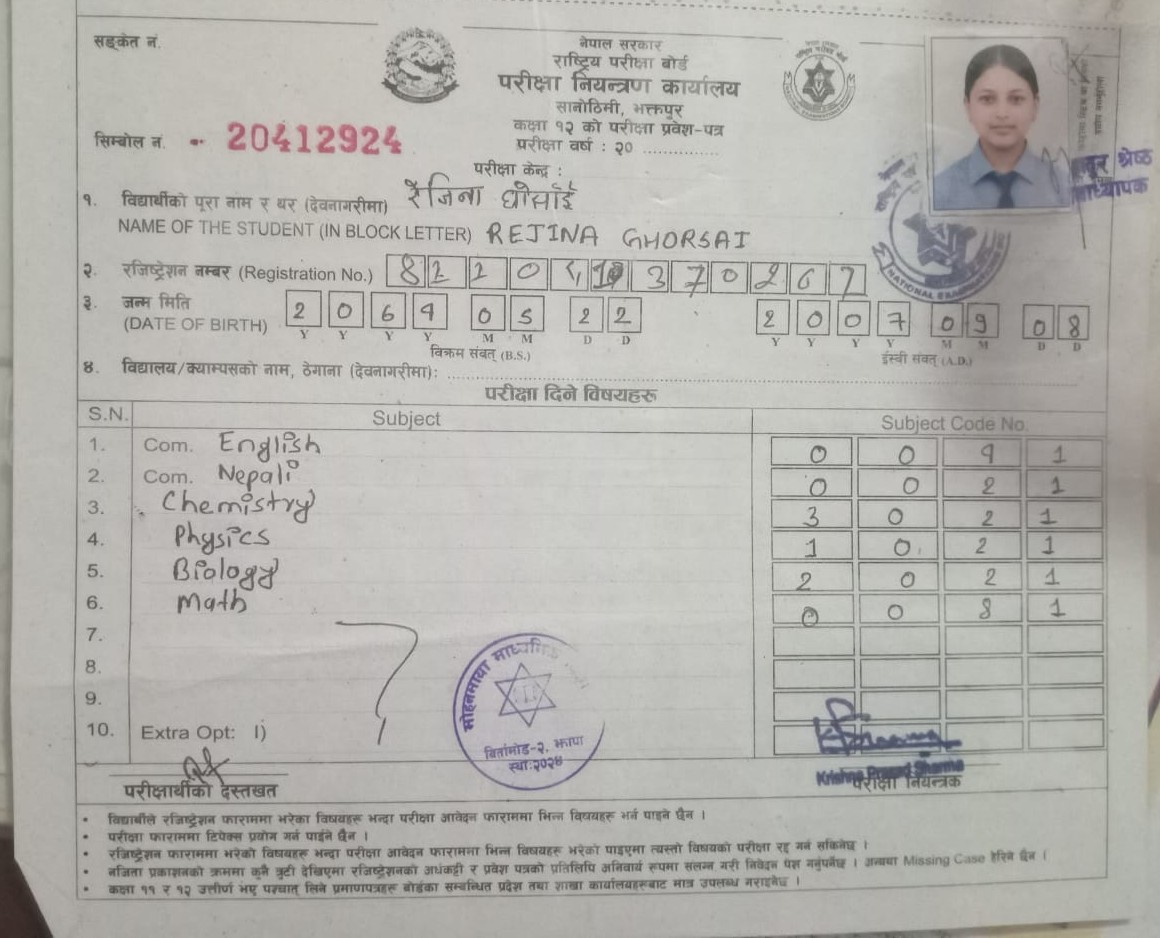 सङ्केत नं.
नेपाल सरकार
राष्ट्रिय परीक्षा बोर्ड
परीक्षा नियन्त्रण कार्यालय
सानोठिमी, भक्तपुर
कक्षा १२ को परीक्षा प्रवेश-पत्र
सिम्बोल नं. 20412924
परीक्षा वर्ष : २० ....................
परीक्षा केन्द्र :
१. विद्यार्थीको पूरा नाम र थर (देवनागरीमा) रेजिना घोर्साई
NAME OF THE STUDENT (IN BLOCK LETTER) REJINA GHORSAI
२. रजिष्ट्रेशन नम्बर (Registration No.)
३. जन्म मिति
(DATE OF BIRTH) 2 0 6 4 0 5 2 2 2 0 0 7 0 9 0 8
Y Y Y Y M M D D Y Y Y Y M M D D
विक्रम संवत् (B.S.) ईस्वी संवत् (A.D.)
४. विद्यालय/क्याम्पसको नाम, ठेगाना (देवनागरीमा):
परीक्षा दिने विषयहरू
S.N. Subject Subject Code No.
1. Com. English 0 0 4 1
2. Com. Nepali 0 0 2 1
3. Chemistry 3 0 2 1
4. Physics 1 0 2 1
5. Biology 2 0 2 1
6. Math 0 0 8 1
7.
8.
9.
10. Extra Opt: I)
मोहनमाया माध्यमिक
विर्तामोड-२, झापा
स्था:२०२४
Krishna Prasad Sharma
परीक्षार्थीको दस्तखत परीक्षा नियन्त्रक
• विद्यार्थीले रजिष्ट्रेशन फाराममा भरेका विषयहरू भन्दा परीक्षा आवेदन फाराममा भिन्न विषयहरू भर्न पाइने छैन ।
• परीक्षा फाराममा टिपेक्स प्रयोग गर्न पाईने छैन ।
• रजिष्ट्रेशन फाराममा भरेको विषयहरू भन्दा परीक्षा आवेदन फाराममा भिन्न विषयहरू भरेको पाइएमा त्यस्तो विषयको परीक्षा रद्द गर्न सकिनेछ ।
• नतिजा प्रकाशनको क्रममा कुनै त्रुटी देखिएमा रजिष्ट्रेशनको अर्धकट्टी र प्रवेश पत्रको प्रतिलिपि अनिवार्य रूपमा संलग्न गरी निवेदन पेश गर्नुपर्नेछ । अन्यथा Missing Case हेरिने छैन ।
• कक्षा ११ र १२ उत्तीर्ण भए पश्चात् लिने प्रमाणपत्रहरू बोर्डका सम्बन्धित प्रदेश तथा शाखा कार्यालयहरूबाट मात्र उपलब्ध गराइनेछ ।